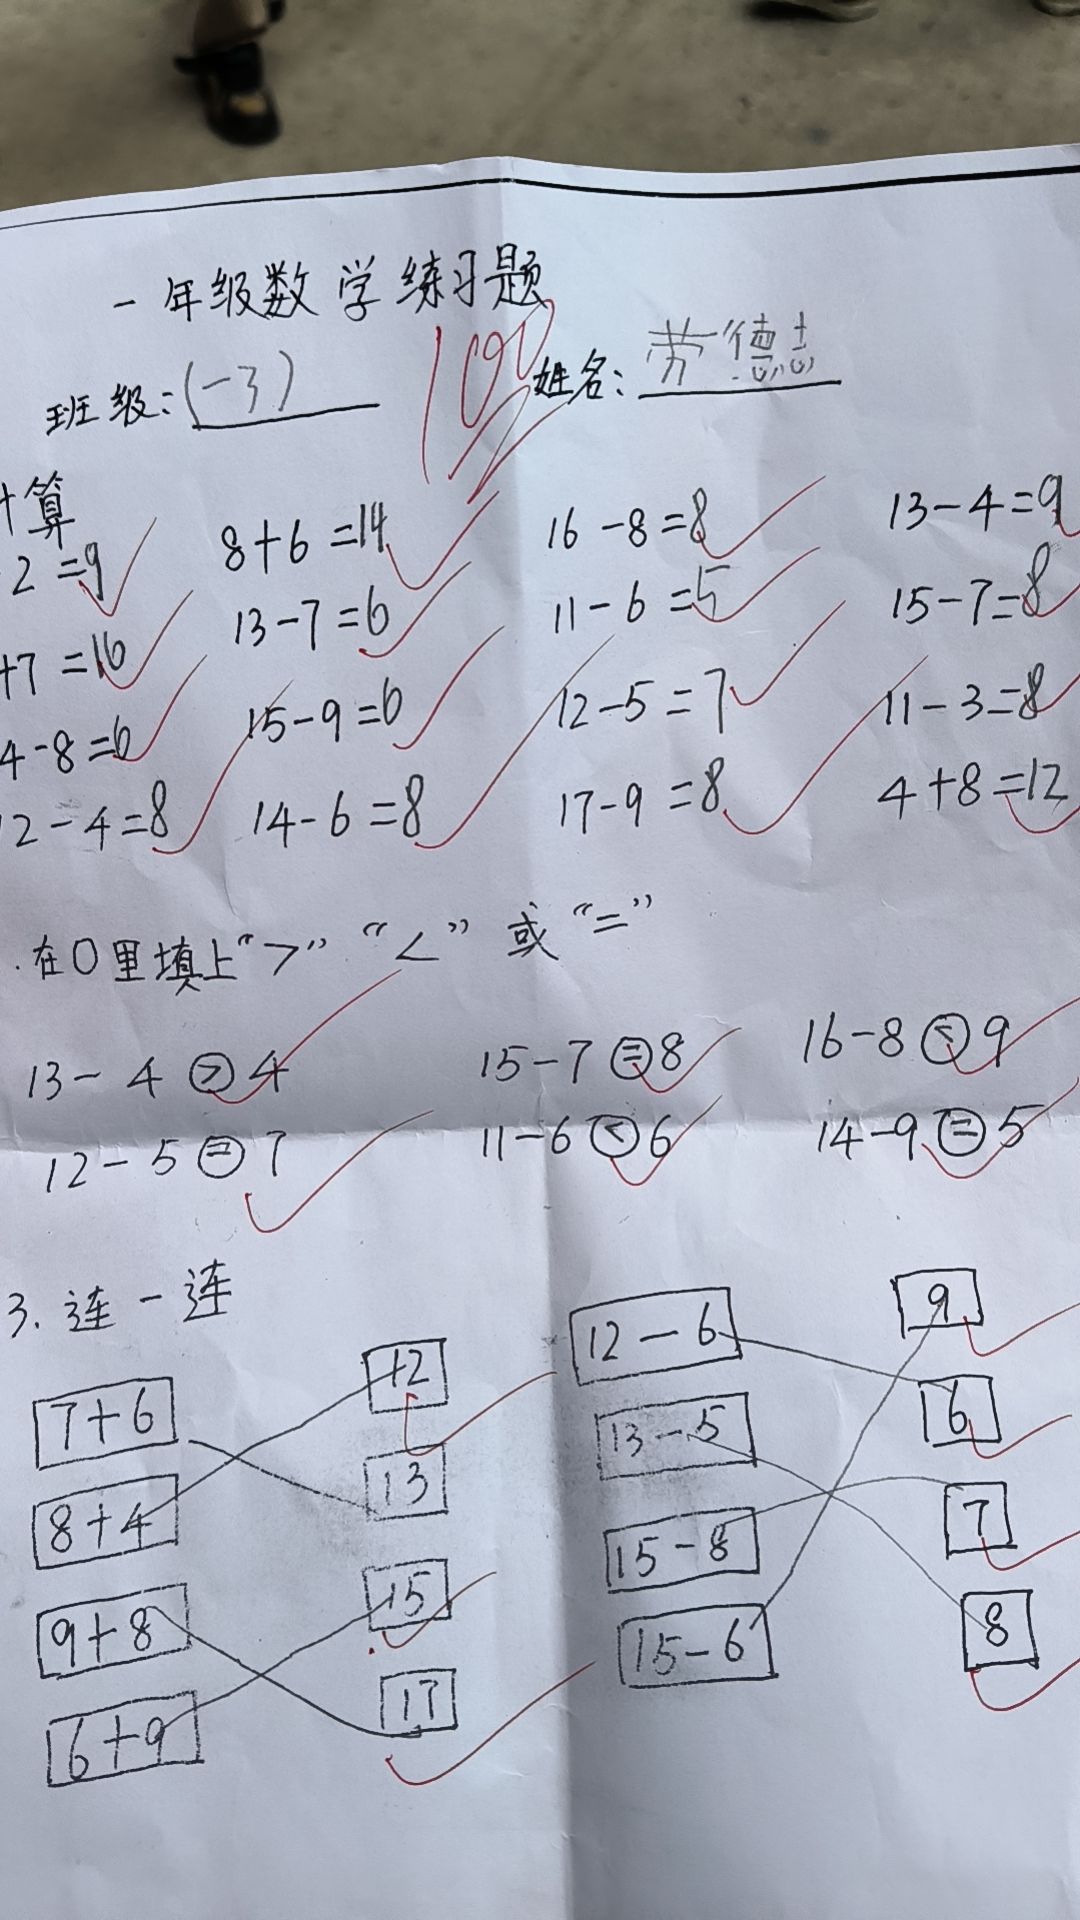 一年级数学练习题
班级:(一3) 100 姓名:劳德志
计算
2=9 8+6=14 16-8=8 13-4=9
+7=16 13-7=6 11-6=5 15-7=8
4-8=6 15-9=6 12-5=7 11-3=8
12-4=8 14-6=8 17-9=8 4+8=12
.在○里填上“>”“<”或“=”
13-4>4 15-7=8 16-8<9
12-5=7 11-6<6 14-9=5
3.连一连
7+6 12 12-6 9
8+4 13 13-5 6
9+8 15 15-8 7
6+9 17 15-6 8